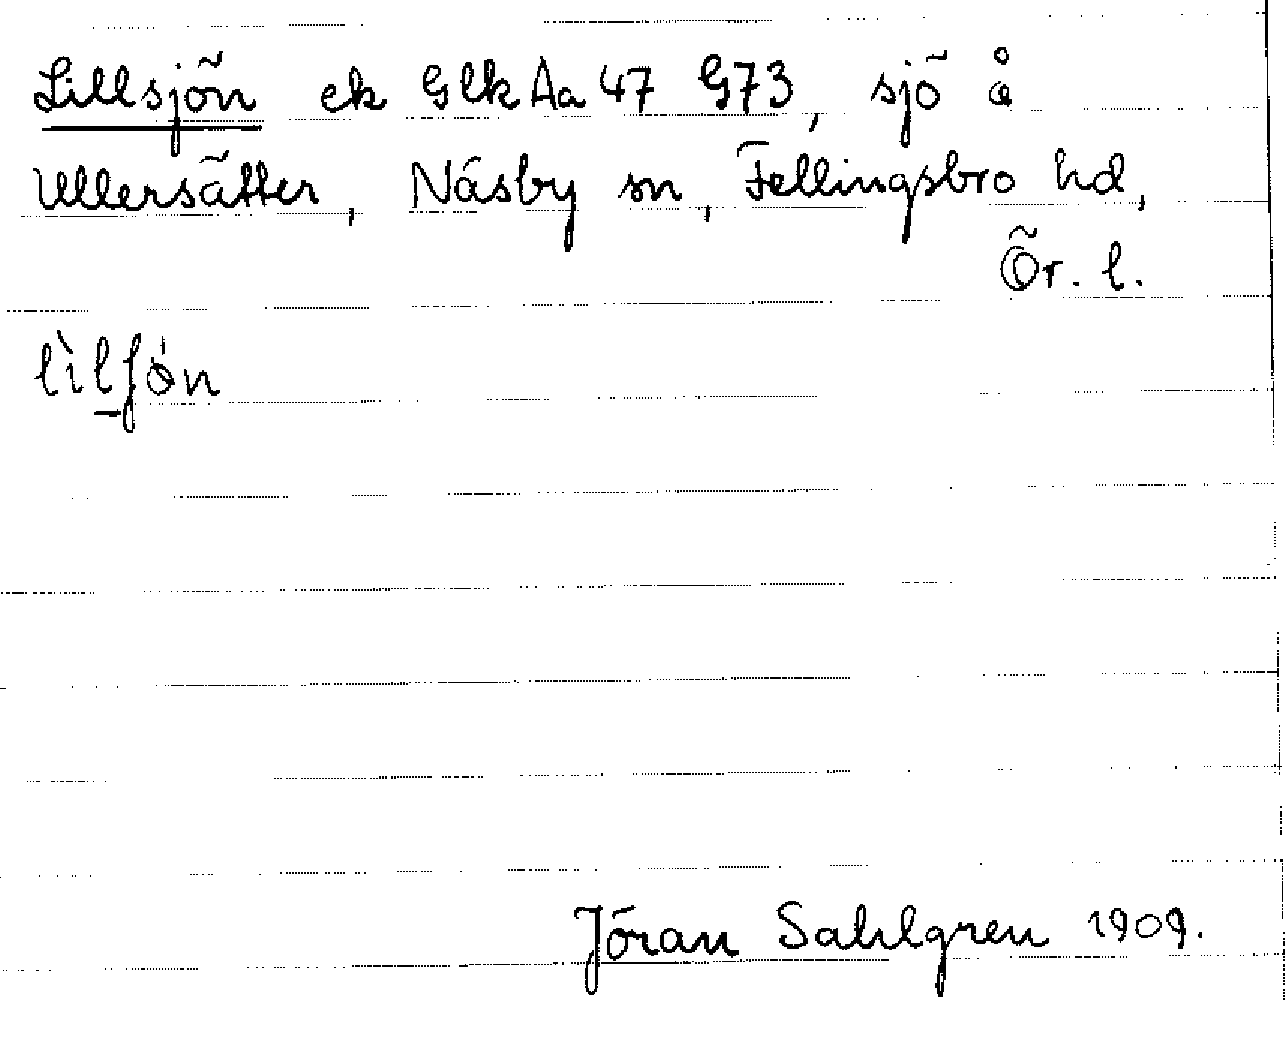 Lillsjön ek Glk Aa 47 G73, sjö å
Ullersätter, Näsby sn, Fellingsbro hd,
Ör. l.
Jöran Sahlgren 1909.